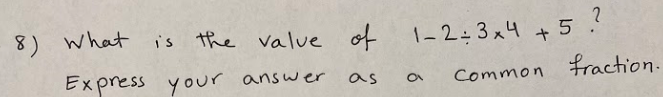 8) What is the value of 1-2÷3×4 + 5 ?
Express your answer as a common fraction.